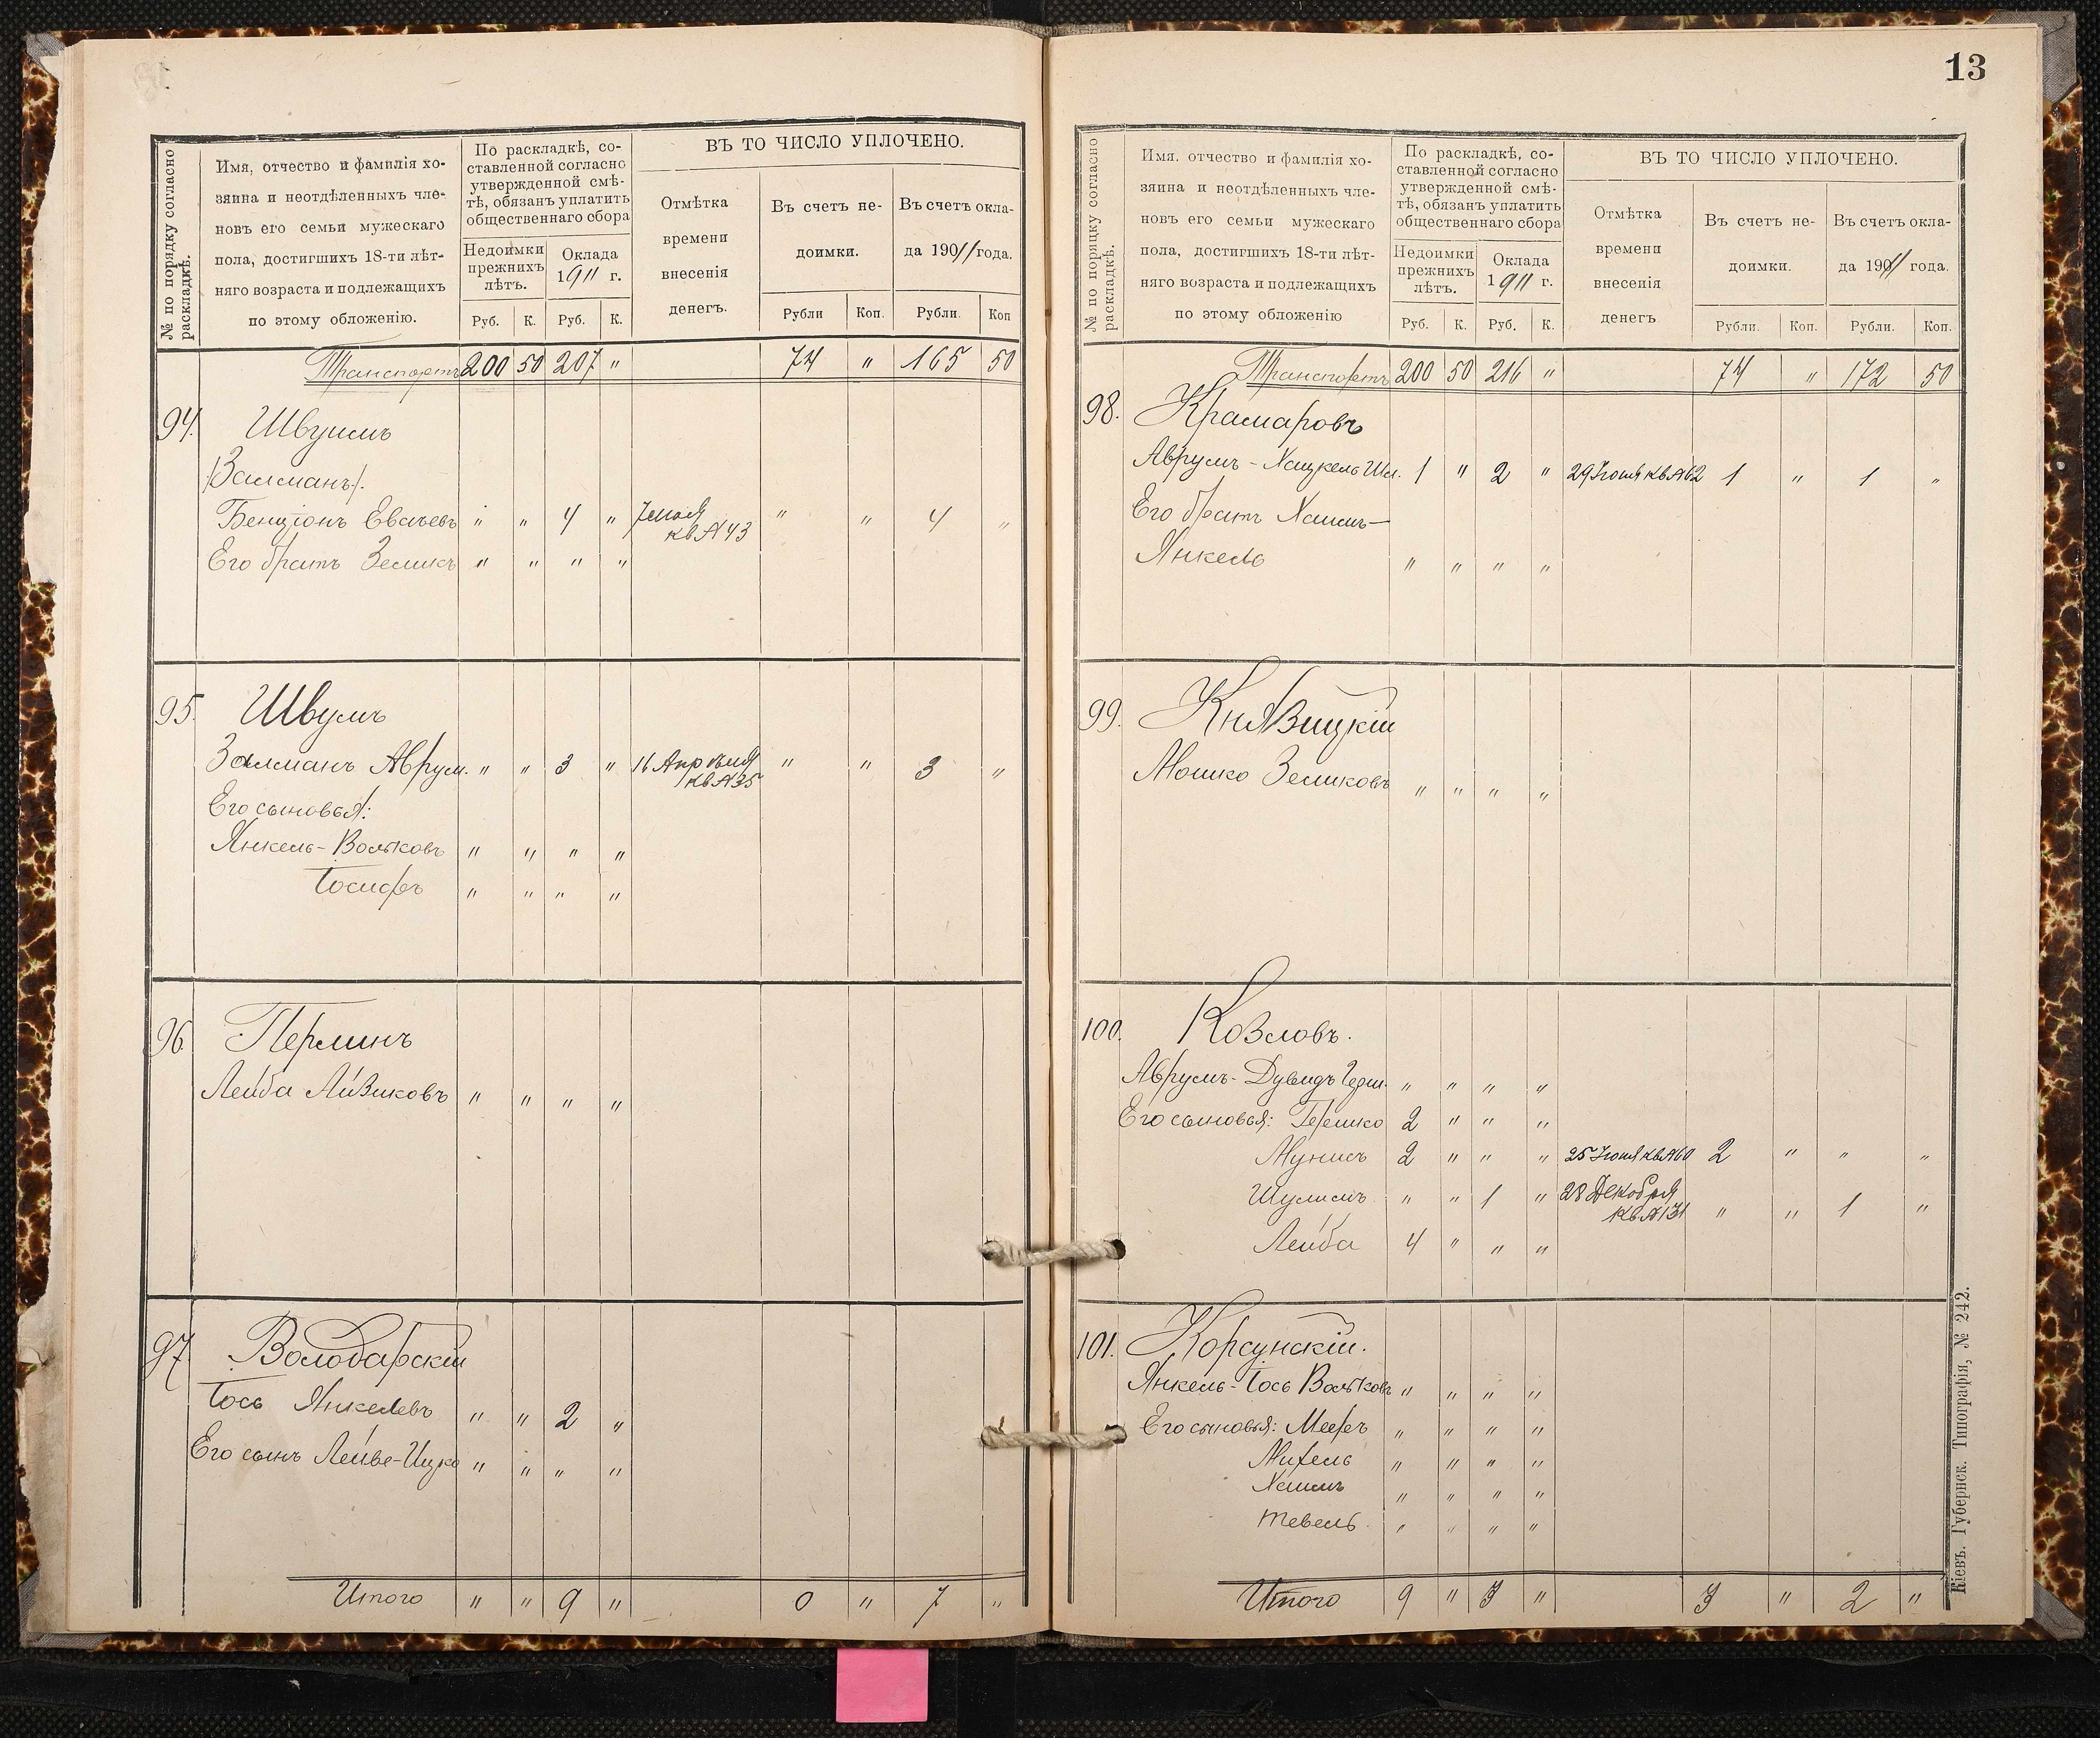 № по порядку согласно раскладкѣ.
Имя, отчество и фамилія хо-
зяина и неотдѣленныхъ чле-
новъ его семьи мужескаго
пола, достигшихъ 18-ти лѣт-
няго возраста и подлежащихъ
по этому обложенію.
По раскладкѣ, со-
ставленной согласно
утвержденной смѣ-
тѣ, обязанъ уплатить
общественнаго сбора
Недоимки прежнихъ лѣтъ.
Оклада 1911 г.
Руб. К. Руб. К.
ВЪ ТО ЧИСЛО УПЛОЧЕНО.
Отмѣтка
времени
внесенія
денегъ.
Въ счетъ не-
доимки.
Въ счетъ окла-
да 19011 года.
Рубли Коп. Рубли. Коп
Транспортъ 200 50 207 " 74 " 165 50
94. Швуимъ
/Залманъ/.
Бенціонъ Евачевъ " " 4 " 7 маія кв № 43 " " 4 "
Его братъ Зеликъ " " " "
95. Швумъ
Залманъ Аврум. " " 3 " 16 Апрѣля кв № 35 " " 3 "
Его сыновья:
Янкель-Вольковъ " " " "
Іосифъ " " " "
96. Перлинъ
Лейба Айзиковъ " " " "
97. Володарскій
Іось Янкелевъ " " 2 "
Его сынъ Лейбе-Ицко " " " "
Итого " " 9 " 0 " 7 "
13
№ по порядку согласно раскладкѣ.
Имя. отчество и фамилія хо-
зяина и неотдѣленныхъ чле-
новъ его семьи мужескаго
пола, достигшихъ 18-ти лѣт-
няго возраста и подлежащихъ
по этому обложенію
По раскладкѣ, со-
ставленной согласно
утвержденной смѣ-
тѣ, обязанъ уплатить
общественнаго сбора
Недоимки прежнихъ лѣтъ.
Оклада 1911 г.
Руб. К. Руб. К.
ВЪ ТО ЧИСЛО УПЛОЧЕНО.
Отмѣтка
времени
внесенія
денегъ
Въ счетъ не-
доимки.
Въ счетъ окла-
да 19011 года.
Рубли. Коп. Рубли. Коп.
Транспортъ 200 50 216 " 74 " 172 50
98. Крамаровъ
Аврумъ-Хацкель Шл. 1 " 2 " 29 Іюня кв № 62 1 " 1 "
Его братъ Хаимъ-
Янкель " " " "
99. Князицкій
Мошко Зеликовъ " " " "
100. Козловъ.
Аврумъ-Дувидъ Герш. " " " "
Его сыновья: Гершко 2 " " "
Мунисъ 2 " " " 25 Іюня кв № 60 2 " " "
Шулимъ " " 1 " 28 Декабря кв. № 131 " " 1 "
Лейба 4 " " "
101. Корсунскій.
Янкель-Іось Вольковъ " " " "
Его сыновья: Мееръ " " " "
Михель " " " "
Хаимъ " " " "
Тевель. " " " "
Итого 9 " 3 " 3 " 2 "
Кіевъ. Губернск. Типографія, № 242.